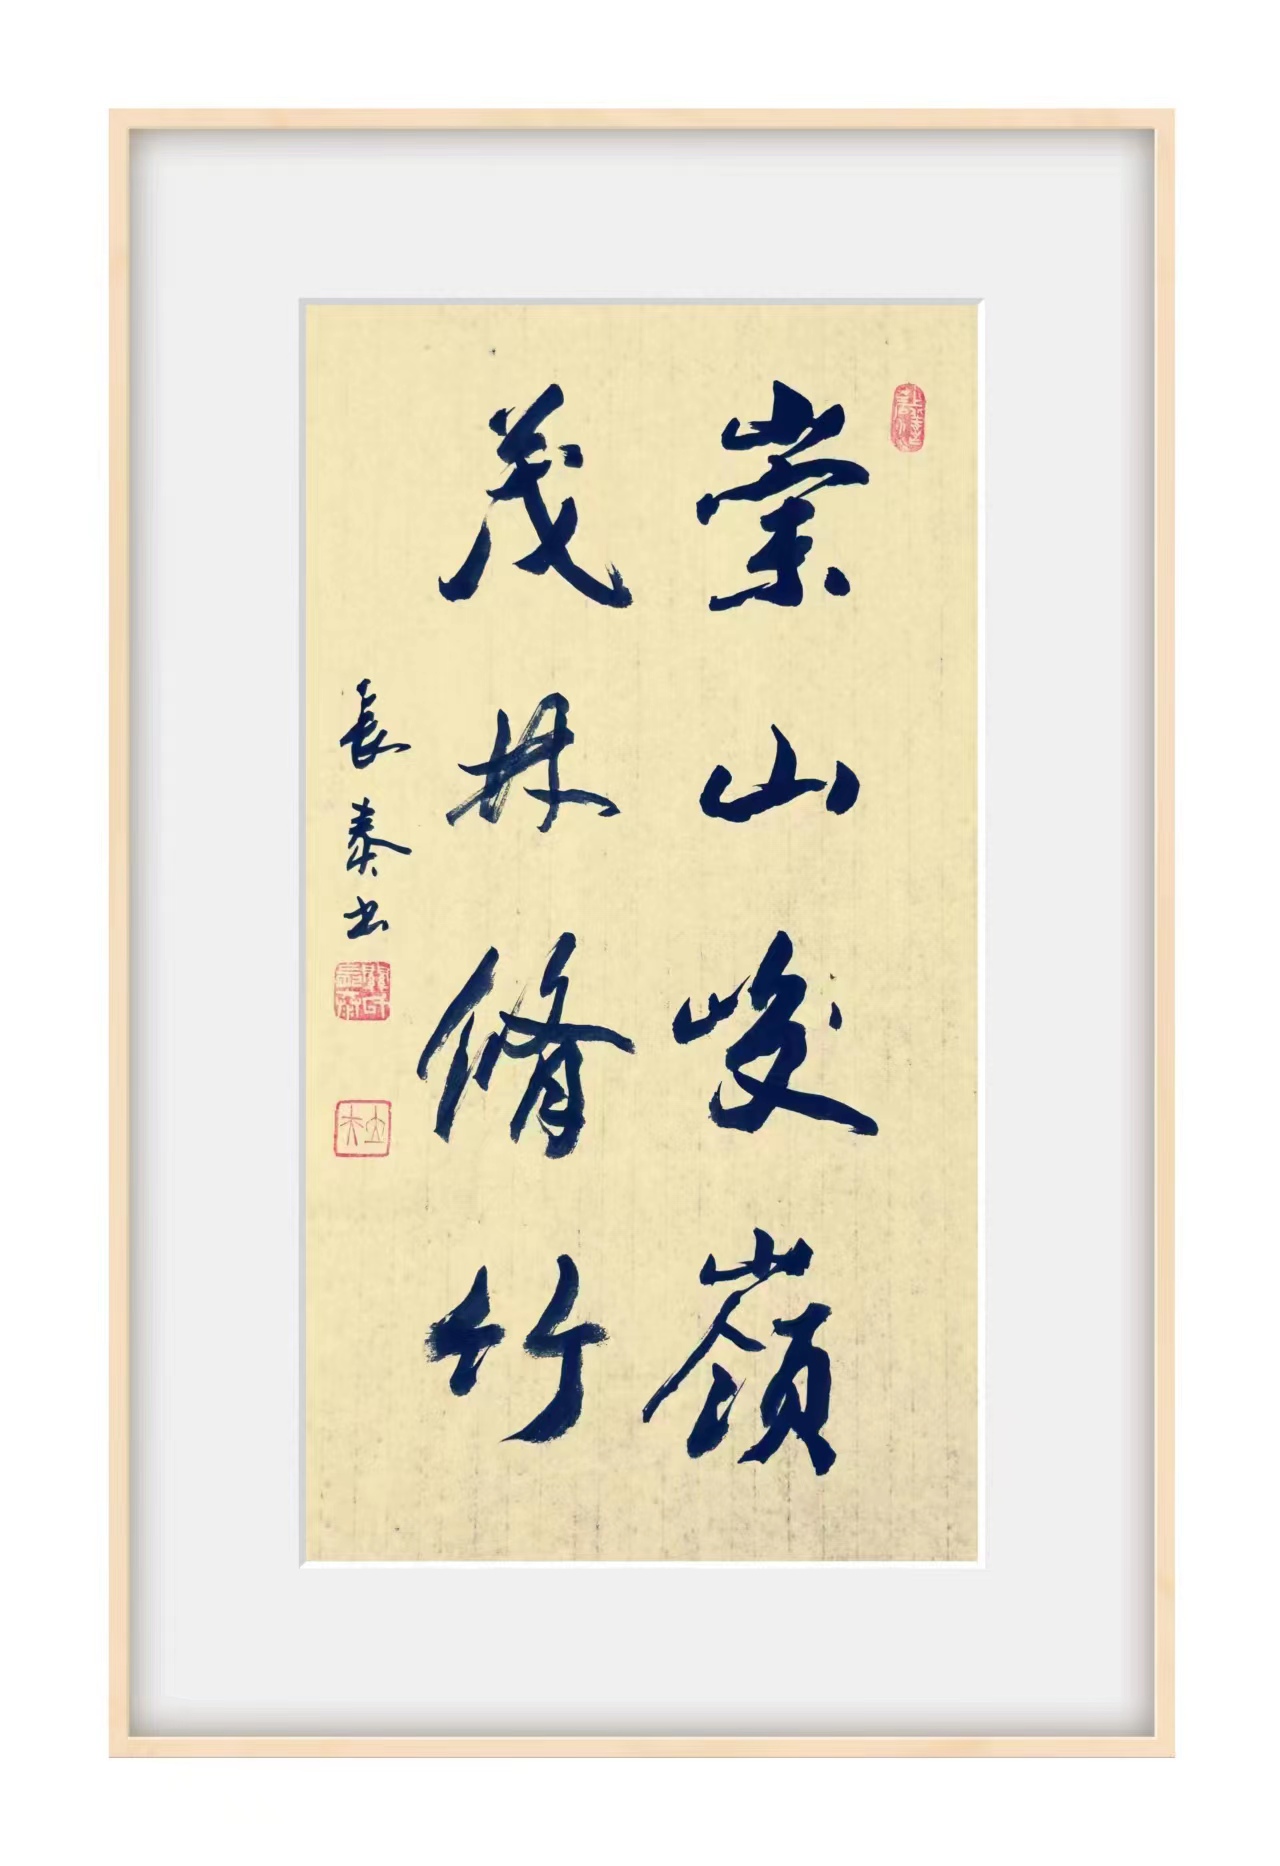 崇山峻嶺
茂林脩竹
長泰书